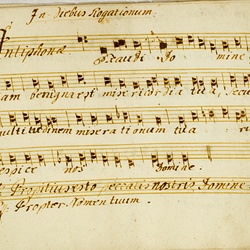 In Diebus Rogationum.
Antiphona Exaudi Do mine
am benigna est misericordia tua, secun
multitudinem misera tionum tua re
spice nos Domine.
℣. Propitius esto peccatis nostris Domine
℟. Propter Nomen tuum.